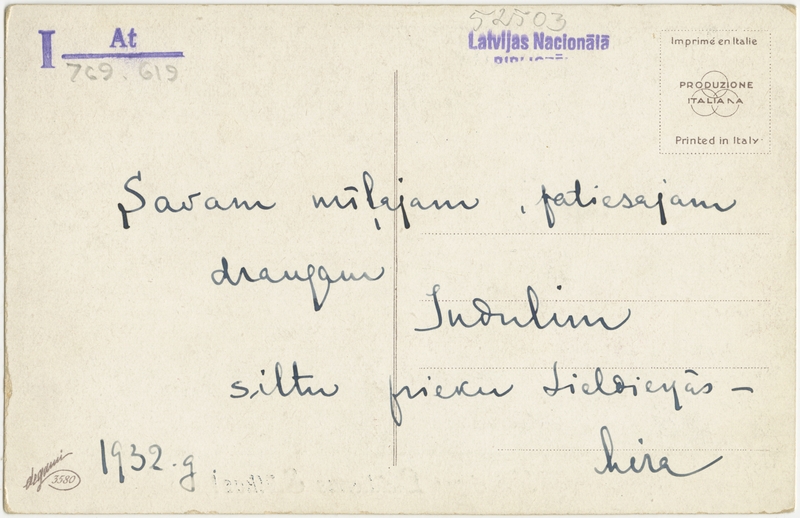 I At
769.619
52503
Latvijas Nacionālā
Imprimé en Italie
PRODUZIONE
ITALIANA
Printed in Italy
Savam mīļajam, patiesajam
draugam
Indulim
siltu prieku Lieldienās –
1932.g
degami
3580